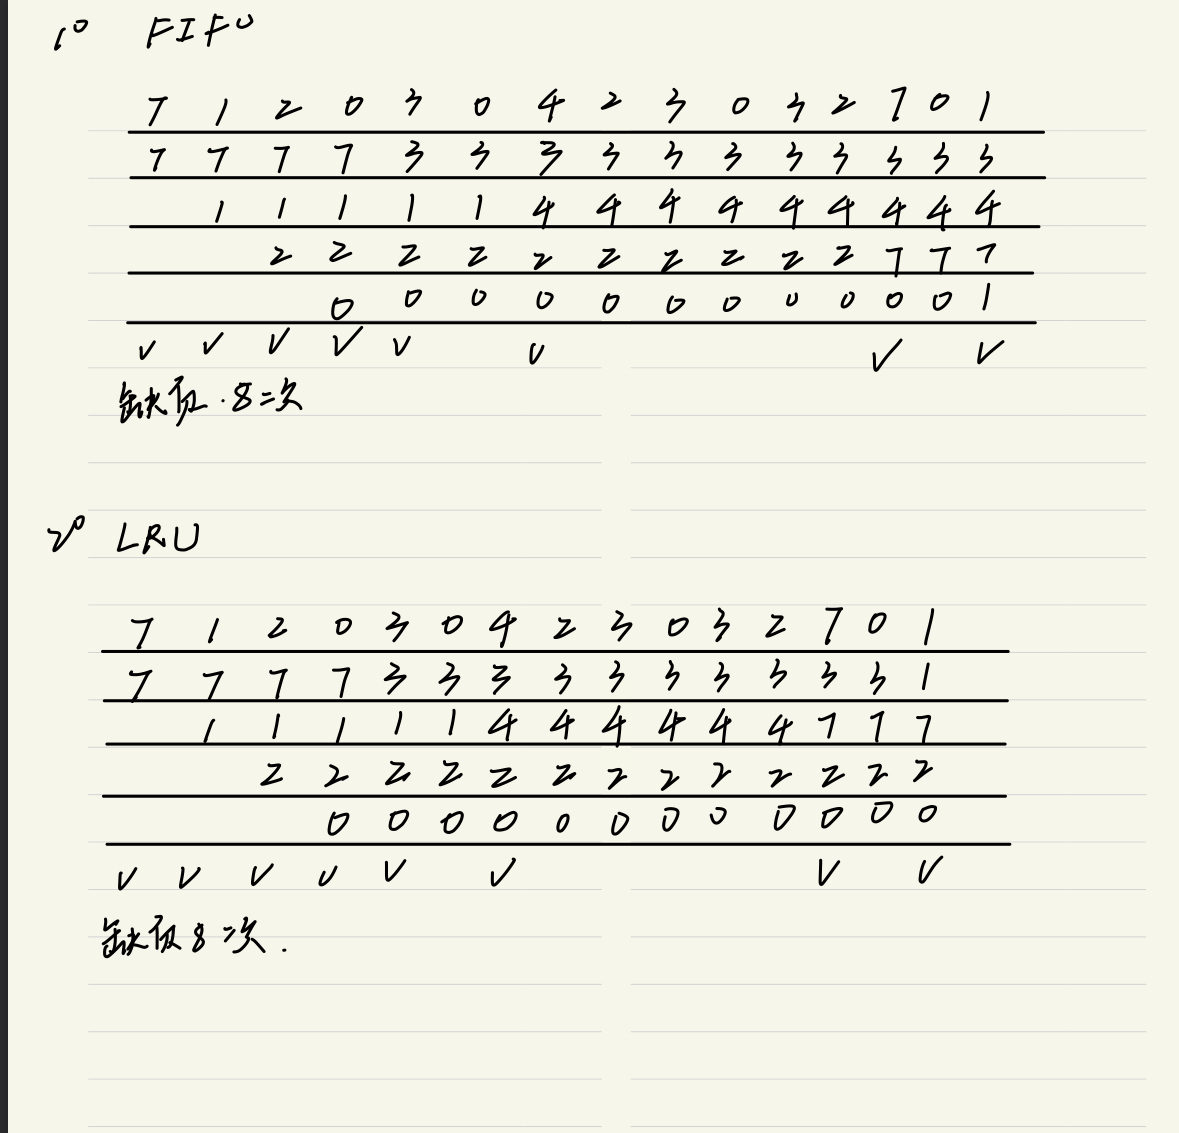 1° FIFO
7 1 2 0 3 0 4 2 3 0 3 2 7 0 1
7 7 7 7 3 3 3 3 3 3 3 3 3 3 3
1 1 1 1 1 4 4 4 4 4 4 4 4 4
2 2 2 2 2 2 2 2 2 2 7 7 7
0 0 0 0 0 0 0 0 0 0 0 1
✓ ✓ ✓ ✓ ✓ ✓ ✓ ✓
缺页.8次
2° LRU
7 1 2 0 3 0 4 2 3 0 3 2 7 0 1
7 7 7 7 3 3 3 3 3 3 3 3 3 3 1
1 1 1 1 1 4 4 4 4 4 4 7 7 7
2 2 2 2 2 2 2 2 2 2 2 2 2
0 0 0 0 0 0 0 0 0 0 0 0
✓ ✓ ✓ ✓ ✓ ✓ ✓ ✓
缺页8次.